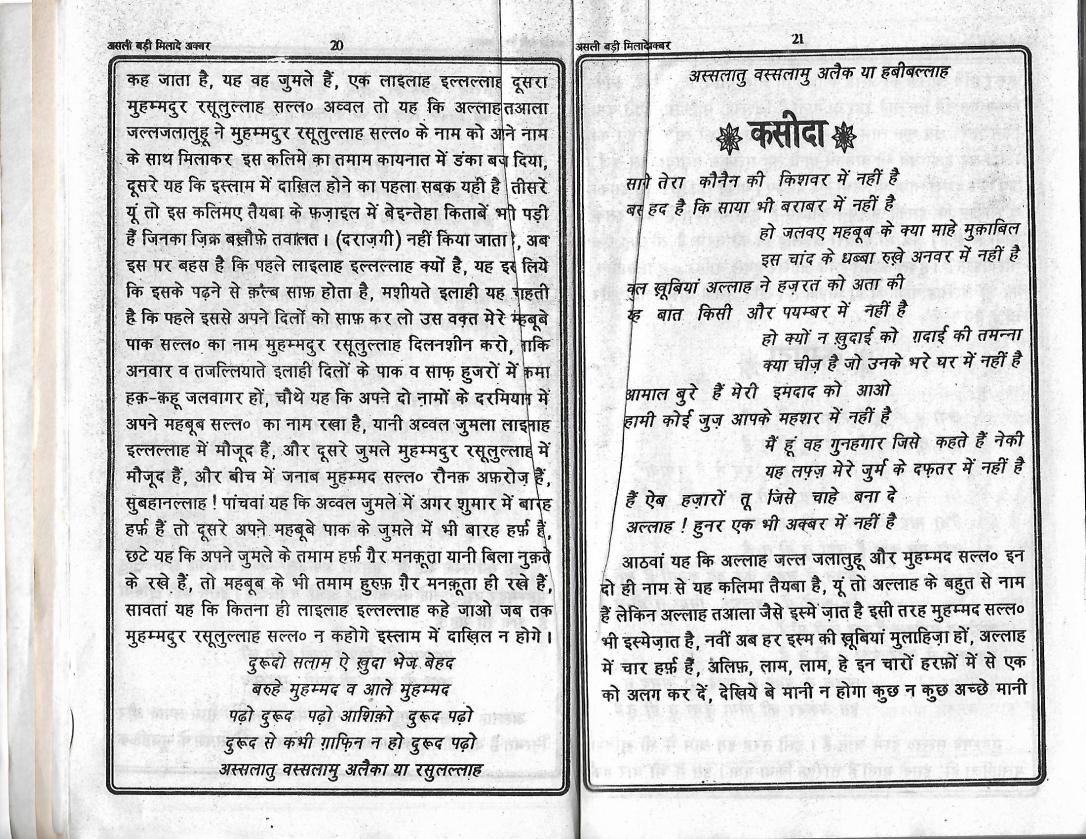 असली बड़ी मिलादे अक्बर 20
कह जाता है, यह वह जुमले हैं, एक लाइलाह इल्लल्लाह दूसरा
मुहम्मदुर रसूलुल्लाह सल्ल० अव्वल तो यह कि अल्लाह तआला
जल्लजलालुहू ने मुहम्मदुर रसूलुल्लाह सल्ल० के नाम को अने नाम
के साथ मिलाकर इस कलिमे का तमाम कायनात में डंका बज दिया,
दूसरे यह कि इस्लाम में दाख़िल होने का पहला सबक़ यही है तीसरे
यूं तो इस कलिमए तैयबा के फ़ज़ाइल में बेइन्तेहा किताबें भरी पड़ी
हैं जिनका ज़िक्र बख़ौफ़े तवालत। (दराज़गी) नहीं किया जाता, अब
इस पर बहस है कि पहले लाइलाह इल्लल्लाह क्यों है, यह इस लिये
कि इसके पढ़ने से क़ल्ब साफ़ होता है, मशीयते इलाही यह चाहती
है कि पहले इससे अपने दिलों को साफ़ कर लो उस वक़्त मेरे महबूबे
पाक सल्ल० का नाम मुहम्मदुर रसूलुल्लाह दिलनशीन करो, ताकि
अनवार व तजल्लियाते इलाही दिलों के पाक व साफ़ हुजरों में कमा
हक़-क़हू जलवागर हों, चौथे यह कि अपने दो नामों के दरमियान में
अपने महबूब सल्ल० का नाम रखा है, यानी अव्वल जुमला लाइलाह
इल्लल्लाह में मौजूद हैं, और दूसरे जुमले मुहम्मदुर रसूलुल्लाह में
मौजूद हैं, और बीच में जनाब मुहम्मद सल्ल० रौनक़ अफ़रोज़ हैं,
सुबहानल्लाह ! पांचवां यह कि अव्वल जुमले में अगर शुमार में बारह
हर्फ़ हैं तो दूसरे अपने महबूबे पाक के जुमले में भी बारह हर्फ़ हैं,
छटे यह कि अपने जुमले के तमाम हर्फ़ ग़ैर मनक़ूता यानी बिला नुक़्ते
के रखे हैं, तो महबूब के भी तमाम हुरुफ़ ग़ैर मनक़ूता ही रखे हैं,
सावतां यह कि कितना ही लाइलाह इल्लल्लाह कहे जाओ जब तक
मुहम्मदुर रसूलुल्लाह सल्ल० न कहोगे इस्लाम में दाख़िल न होगे।
दुरूदो सलाम ऐ ख़ुदा भेज बेहद
बरुहे मुहम्मद व आले मुहम्मद
पढ़ो दुरूद पढ़ो आशिक़ो दुरूद पढ़ो
दुरूद से कभी ग़ाफ़िन न हो दुरूद पढ़ो
अस्सलातु वस्सलामु अलैका या रसुलल्लाह
असली बड़ी मिलादे अक्बर 21
अस्सलातु वस्सलामु अलैक या हबीबल्लाह
कसीदा
साया तेरा कौनैन की किशवर में नहीं है
बस हद है कि साया भी बराबर में नहीं है
हो जलवए महबूब के क्या माहे मुक़ाबिल
इस चांद के धब्बा रुख़े अनवर में नहीं है
कुल ख़ूबियां अल्लाह ने हज़रत को अता की
यह बात किसी और पयम्बर में नहीं है
हो क्यों न ख़ुदाई को ग़दाई की तमन्ना
क्या चीज़ है जो उनके भरे घर में नहीं है
आमाल बुरे हैं मेरी इमदाद को आओ
हामी कोई जुज़ आपके महशर में नहीं है
मैं हूं वह गुनहगार जिसे कहते हैं नेकी
यह लफ़्ज़ मेरे जुर्म के दफ़तर में नहीं है
हैं ऐब हज़ारों तू जिसे चाहे बना दे
अल्लाह ! हुनर एक भी अक्बर में नहीं है
आठवां यह कि अल्लाह जल्ल जलालुहू और मुहम्मद सल्ल० इन
दो ही नाम से यह कलिमा तैयबा है, यूं तो अल्लाह के बहुत से नाम
हैं लेकिन अल्लाह तआला जैसे इस्मे ज़ात है इसी तरह मुहम्मद सल्ल०
भी इस्मेज़ात है, नवीं अब हर इस्म की ख़ूबियां मुलाहिज़ा हों, अल्लाह
में चार हर्फ़ हैं, अलिफ़, लाम, लाम, हे इन चारों हरफ़ों में से एक
को अलग कर दें, देखिये बे मानी न होगा कुछ न कुछ अच्छे मानी